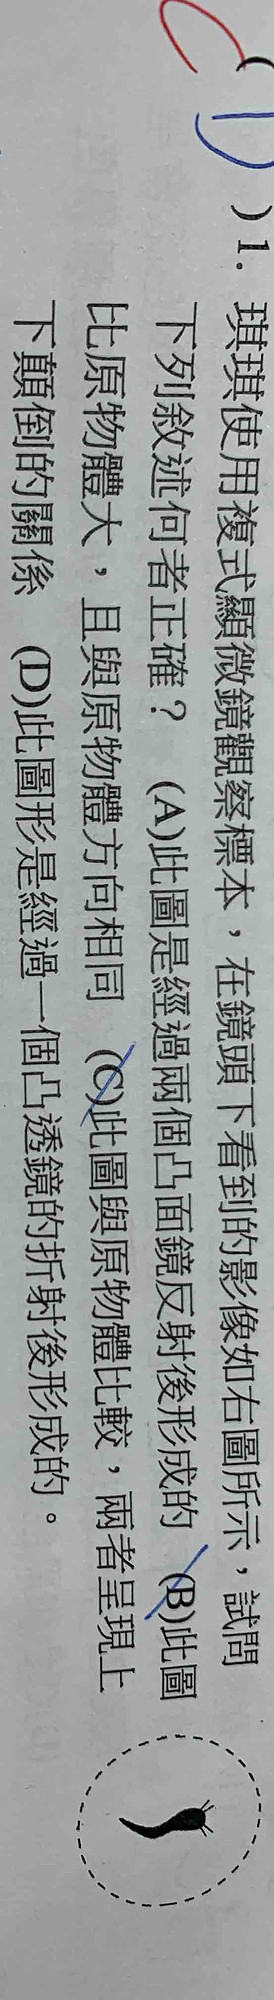 C
( D )1. 琪琪使用複式顯微鏡觀察標本，在鏡頭下看到的影像如右圖所示，試問
下列敘述何者正確？ (A)此圖是經過兩個凸面鏡反射後形成的 (B)此圖
比原物體大，且與原物體方向相同 (C)此圖與原物體比較，兩者呈現上
下顛倒的關係 (D)此圖形是經過一個凸透鏡的折射後形成的。